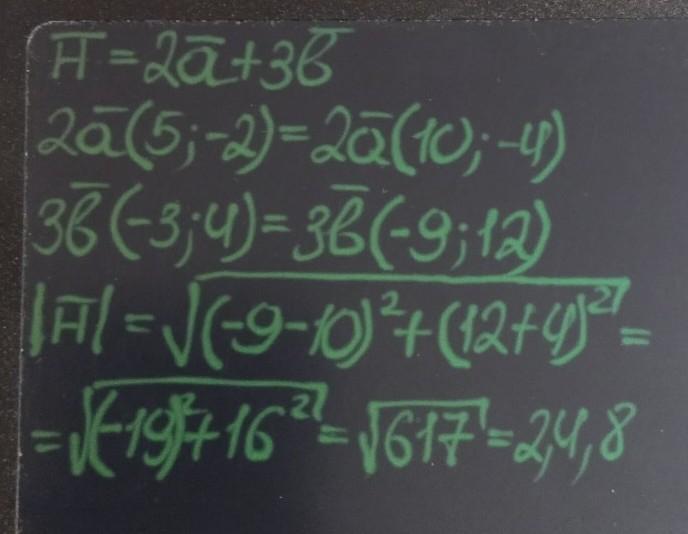 H̅ = 2a̅+3b̅
2a̅(5;-2)=2a̅(10;-4)
3b̅(-3;4)=3b̅(-9;12)
|H̅| = √((-9-10)²+(12+4)²) =
= √((-19)²+16²) = √617 = 2,4,8